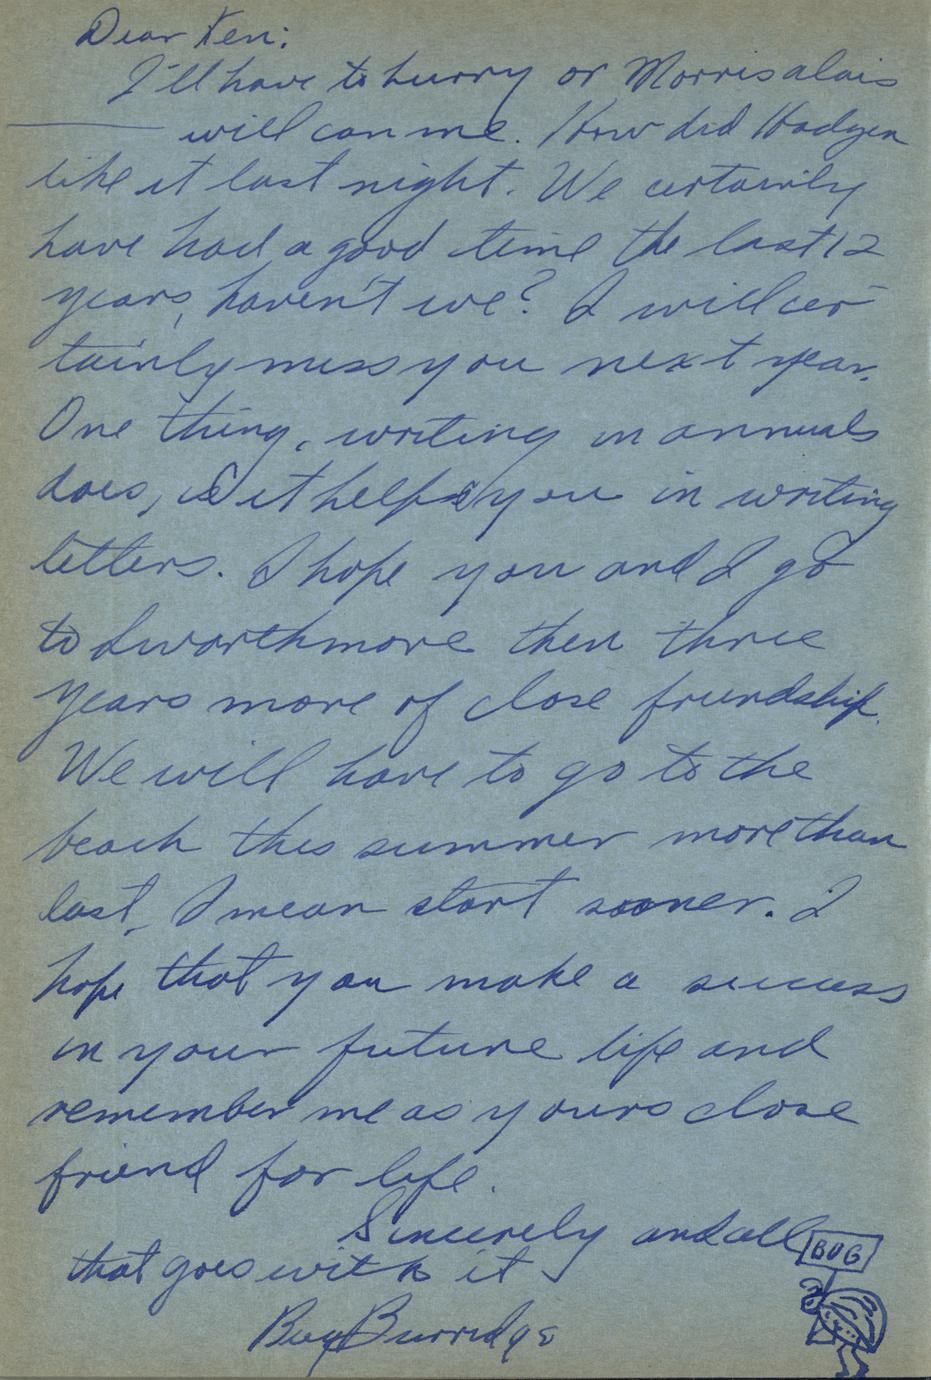 Dear Ken:
I'll have to hurry or Morris alais
will can me. How did Hodgen
like it last night. We certainly
have had a good time the last 12
years, haven't we? I will cer-
tainly miss you next year.
One thing, writing in annuals
does, is it helps you in writing
letters. I hope you and I go
to Swarthmore then three
years more of close friendship.
We will have to go to the
beach this summer more than
last, I mean start sooner. I
hope that you make a success
in your future life and
remember me as yours close
friend for life.
Sincerely and all
that goes with it
Bug Burridge
BUG